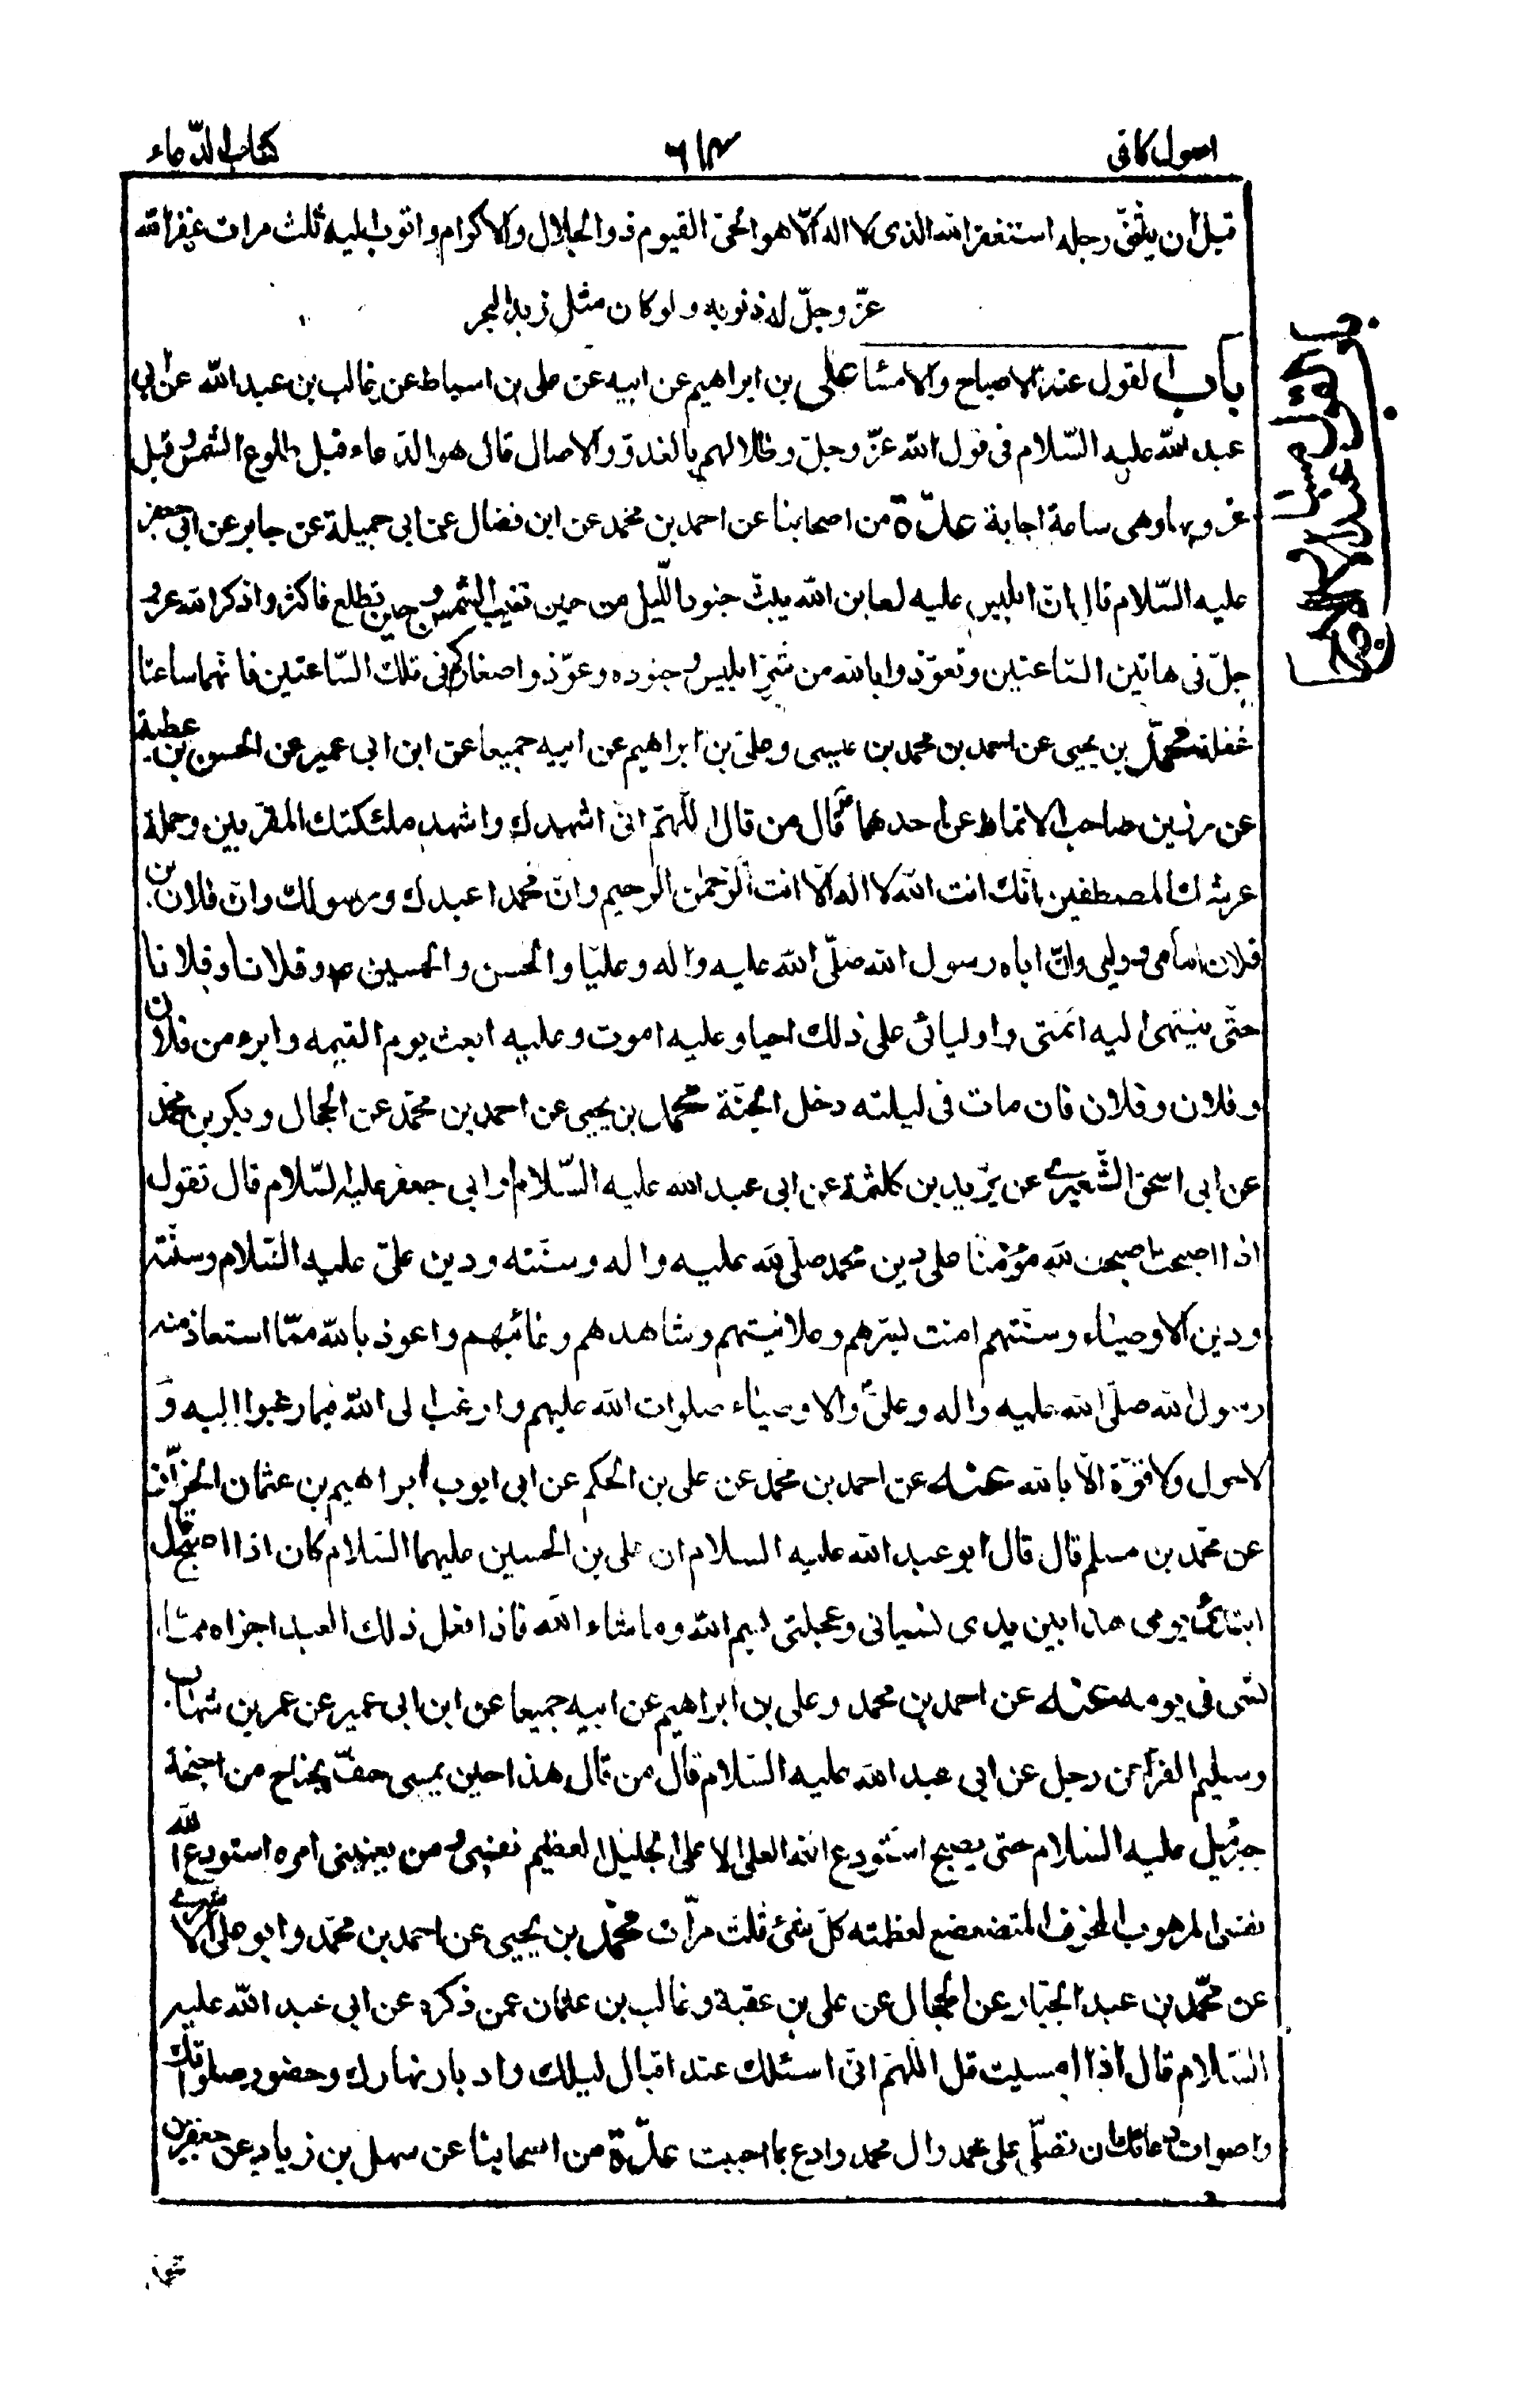 اصول كافى
٦١٣
كتاب الدّعاء
قبل ان يثنى رجله استغفر الله الذى لا اله الّا هو الحىّ القيوم ذو الجلال والاكرام و اتوب اليه ثلث مرات غفر الله
عزّ و جلّ له ذنوبه و لو كان مثل زبد البحر
باب القول عند الاصباح والامسا على بن ابراهيم عن ابيه عن على بن اسباط عن غالب بن عبد الله عن ابى
عبد الله عليه السّلام فى قول الله عزّ و جلّ و ظلالهم بالغدوّ والاصال قال هو الدّعاء قبل طلوع الشمس و قبل
غروبها و هى ساعة اجابة عدّة من اصحابنا عن احمد بن محمد عن ابن فضال عن ابى جميلة عن جابر عن ابى جعفر
عليه السّلام قال انّ ابليس عليه لعاين الله يبثّ جنود اللّيل من حين تغيب الشمس و حين تطلع فاكثروا ذكر الله عز و
جلّ فى هاتين السّاعتين و تعوّذوا بالله من شرّ ابليس و جنوده و عوّذوا صغاركم فى تلك السّاعتين فانّهما ساعتا
غفلة محمّد بن يحيى عن احمد بن محمد بن عيسى و علىّ بن ابراهيم عن ابيه جميعا عن ابن ابى عمير عن الحسن بن عطية
عن رزين صاحب الانماط عن احدهما ع قال من قال اللّهمّ انّى اشهدك و اشهد ملئكتك المقرّبين و حملة
عرشك المصطفين انّك انت الله لا اله الّا انت الرّحمن الرحيم و انّ محمدا عبدك و رسولك و انّ فلان بن
فلان امامى و وليى و انّ اباه رسول الله صلّى الله عليه و اله و عليّا و الحسن و الحسين ع و فلانا و فلانا
حتّى ينتهى اليه ائمّتى و اوليائى على ذلك احيا و عليه اموت و عليه ابعث يوم القيمه و ابرء من فلان
و فلان و فلان فان مات فى ليلته دخل الجنّة محمد بن يحيى عن احمد بن محمّد عن الحجال و بكر بن محمد
عن ابى اسحق الشّعيرى عن يزيد بن كلثمة عن ابى عبد الله عليه السّلام او ابى جعفر عليه السّلام قال تقول
اذا اصبحت اصبحت بالله مؤمنا على دين محمد صلّى الله عليه و اله و سنّته و دين علىّ عليه السّلام و سنّته
و دين الاوصياء و سنّتهم امنت بسرّهم و علانيتهم و شاهدهم و غائبهم و اعوذ بالله ممّا استعاذ منه
رسول الله صلّى الله عليه و اله و علىّ و الاوصياء صلوات الله عليهم و ارغب الى الله فيما رغبوا اليه و
لا حول و لا قوّة الّا بالله عنه عن احمد بن محمد عن على بن الحكم عن ابى ايوب ابراهيم بن عثمان الخزّاز
عن محمّد بن مسلم قال قال ابو عبد الله عليه السلام ان على بن الحسين عليهما السّلام كان اذا اصبح قال
ابتدئ يومى هذا بين يدى نسيانى و عجلتى بسم الله و ما شاء الله فاذا فعل ذلك العبد اجزاه ممّا
نسى فى يومه عنه عن احمد بن محمد و على بن ابراهيم عن ابيه جميعا عن ابن ابى عمير عن عمر بن شهاب
و سليم الفرّاء عن رجل عن ابى عبد الله عليه السّلام قال من قال هذا حين يمسى حفّ بجناح من اجنحة
جبرئيل عليه السّلام حتى يصبح استودع الله العلى الاعلى الجليل العظيم نفسى و من يعنينى امره استودع الله
نفسى المرهوب المخوف المتضعضع لعظمته كلّ شئ ثلث مرّات محمّد بن يحيى عن احمد بن محمّد و ابو على الاشعرى
عن محمّد بن عبد الجبّار عن الحجال عن على بن عقبة و غالب بن عثمان عمن ذكره عن ابى عبد الله عليه
السّلام قال اذا امسيت قل اللهمّ انّى اسئلك عند اقبال ليلك و ادبار نهارك و حضور صلواتك
و اصوات دعاتك ان تصلّى على محمد و ال محمد و ادع بما احببت عدّة من اصحابنا عن سهل بن زياد عن جعفر بن